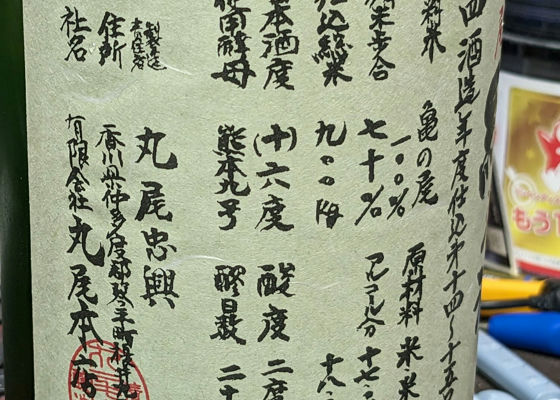 四酒造年度仕込み第十四～十五
料米 亀の尾 一〇〇% 原材料 米・米
精米歩合 七十% アルコール分 十七・
仕込総米 九〇〇kg 十八・
本酒度 (十)六度 酸度 二度
使用酵母 熊本九号 醪日数 二十
製造責任者 丸尾忠興
住所 香川県仲多度郡琴平町榎井
社名 有限会社丸尾本店
もう